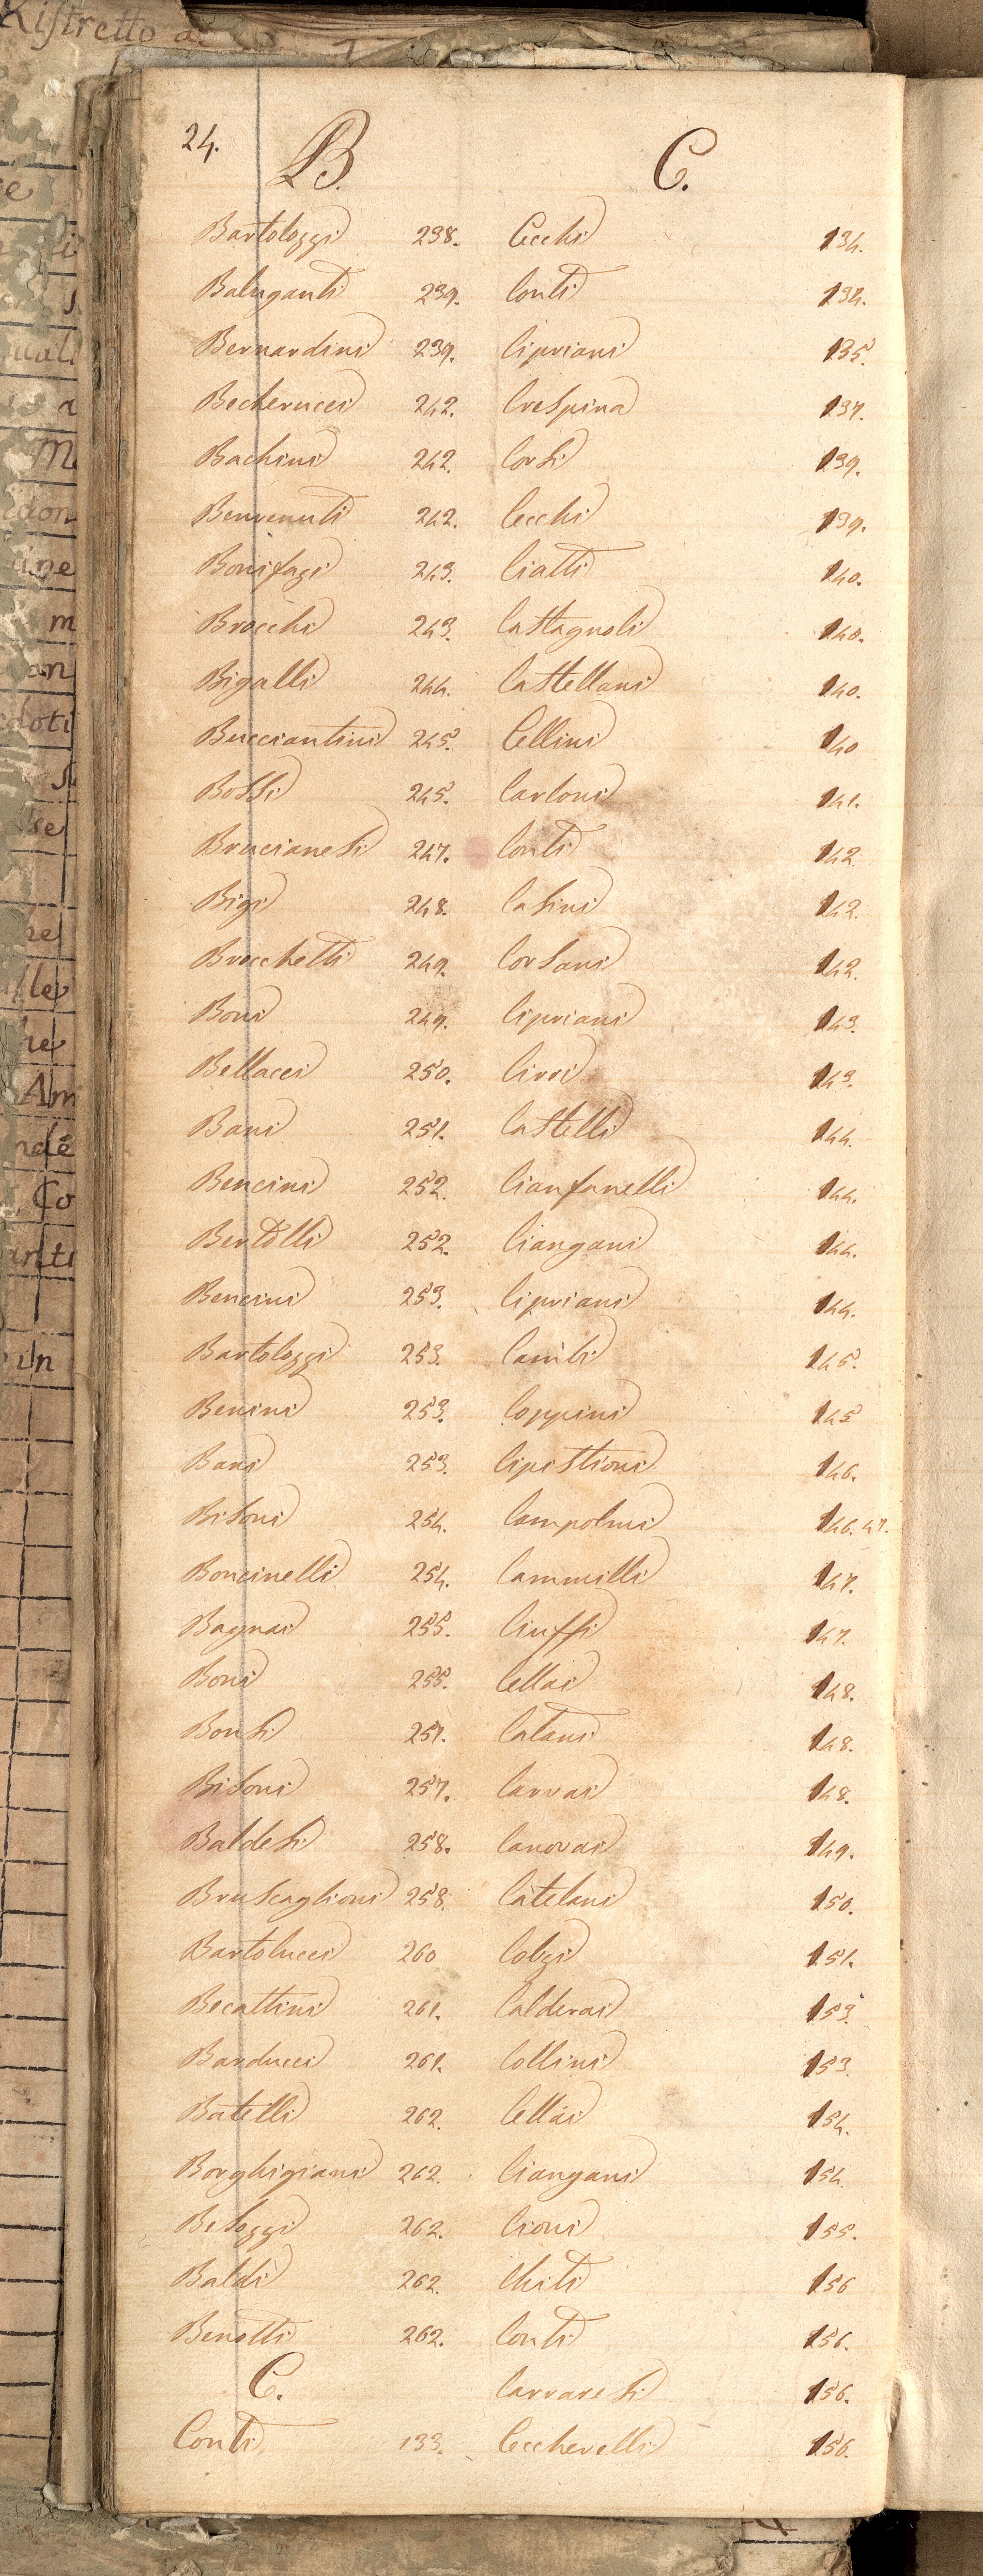 Ristretto
24.
B.
Bartolozzi 238.
Baluganti 239.
Bernardini 239.
Becherucci 242.
Bachini 242.
Benvenuti 242.
Bonifazi 243.
Brocchi 243.
Bigalli 244.
Bucciantini 245.
Bossi 245.
Brucianesi 247.
Bigi 248.
Brocchetti 249.
Boni 249.
Bellacci 250.
Bani 251.
Bencini 252.
Bertolli 252.
Bencini 253.
Bartolozzi 253.
Benini 253.
Bani 253.
Bisoni 254.
Boncinelli 254.
Bagnai 255.
Boni 255.
Bonsi 257.
Bisoni 257.
Baldesi 258.
Bruscaglioni 258.
Bartolucci 260
Becattini 261.
Barducci 261.
Batelli 262.
Borghigiani 262.
Besozzi 262.
Baldi 262.
Benetti 262.
C.
Conti 133.
C.
Cecchi 134.
Conti 134.
Cipriani 135.
Crespina 137.
Corsi 139.
Cecchi 139.
Ciatti 140.
Castagnoli 140.
Castellani 140.
Cellini 140
Carloni 141.
Conti 142.
Casini 142.
Corsani 142.
Cipriani 143.
Cirri 143.
Castelli 144.
Cianfanelli 144.
Ciangani 144.
Cipriani 144.
Cambi 145.
Coppini 145
Cipistioni 146.
Campolmi 146.47.
Cammilli 147.
Ciuffi 147.
Cellai 148.
Catani 148.
Carrai 148.
Canovai 149.
Catelani 150.
Colzi 151.
Calderai 153.
Collini 153.
Cellai 154.
Ciangani 154.
Cioni 155.
Chiti 156
Conti 156.
Carraresi 156.
Ceccherelli 156.